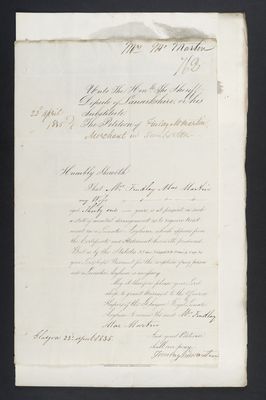 Mrs Mc Martin
Unto The Honble The Sheriff
Depute of Lanarkshire or his
Substitute
22d April
1835
The Petition of Finlay McMartin
Merchant in
Humbly Sheweth
That Mrs Findlay Mac Martin
my Wife
aged Thirty one years is at present in such
a state of mental derangement as to require treat-
ment in a Lunatic Asylum which appears from
the Certificate and Statement herewith produced.
But as by the Statutes
your Lordships Warrant for the reception of any person
into a Lunatic Asylum is necessary
May it therefore please your Lord-
ship to grant Warrant to the Officers and
Keepers of the Glasgow Royal Lunatic
Asylum to receive the said Mrs Findlay
Mac Martin
Glasgow 22d April 1835
And your Petitioner
shall ever pray